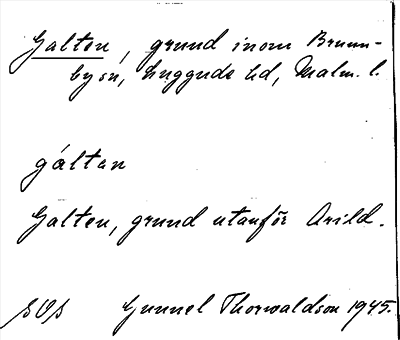 Galten, grund inom Brunn-
bysn, Luggude hd, Malm. l.
gáltan
Galten, grund utanför Arild.
SOS Gunnel Thorwaldson 1945.